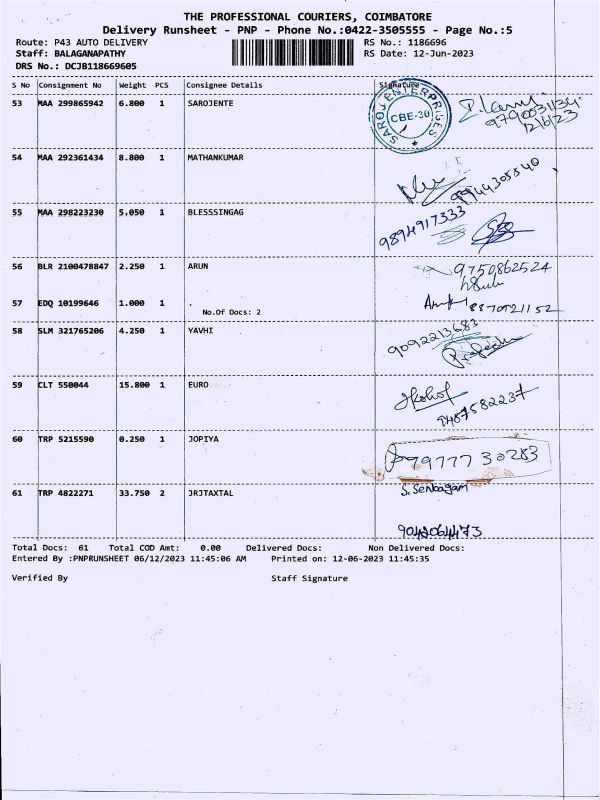 THE PROFESSIONAL COURIERS, COIMBATORE
Delivery Runsheet - PNP - Phone No.:0422-3505555 - Page No.:5
Route: P43 AUTO DELIVERY RS No.: 1186696
Staff: BALAGANAPATHY RS Date: 12-Jun-2023
DRS No.: DCJB118669605
S No Consignment No Weight PCS Consignee Details Signature
53 MAA 299865942 6.800 1 SAROJENTE
SAROJ ENTERPRISES
CBE-30
12/6/23
54 MAA 292361434 8.800 1 MATHANKUMAR
9944305540
55 MAA 298223230 5.050 1 BLESSSINGAG
9894917333
56 BLR 2100478847 2.250 1 ARUN
9750862524
57 EDQ 10199646 1.000 1 .
No.Of Docs: 2
58 SLM 321765206 4.250 1 YAVHI
9092213683
59 CLT 550044 15.800 1 EURO
9487582237
60 TRP 5215590 0.250 1 JOPIYA
7977730283
61 TRP 4822271 33.750 2 JRJTAXTAL
S. Senbagam
9042064473
Total Docs: 61 Total COD Amt: 0.00 Delivered Docs: Non Delivered Docs:
Entered By :PNPRUNSHEET 06/12/2023 11:45:06 AM Printed on: 12-06-2023 11:45:35
Verified By Staff Signature